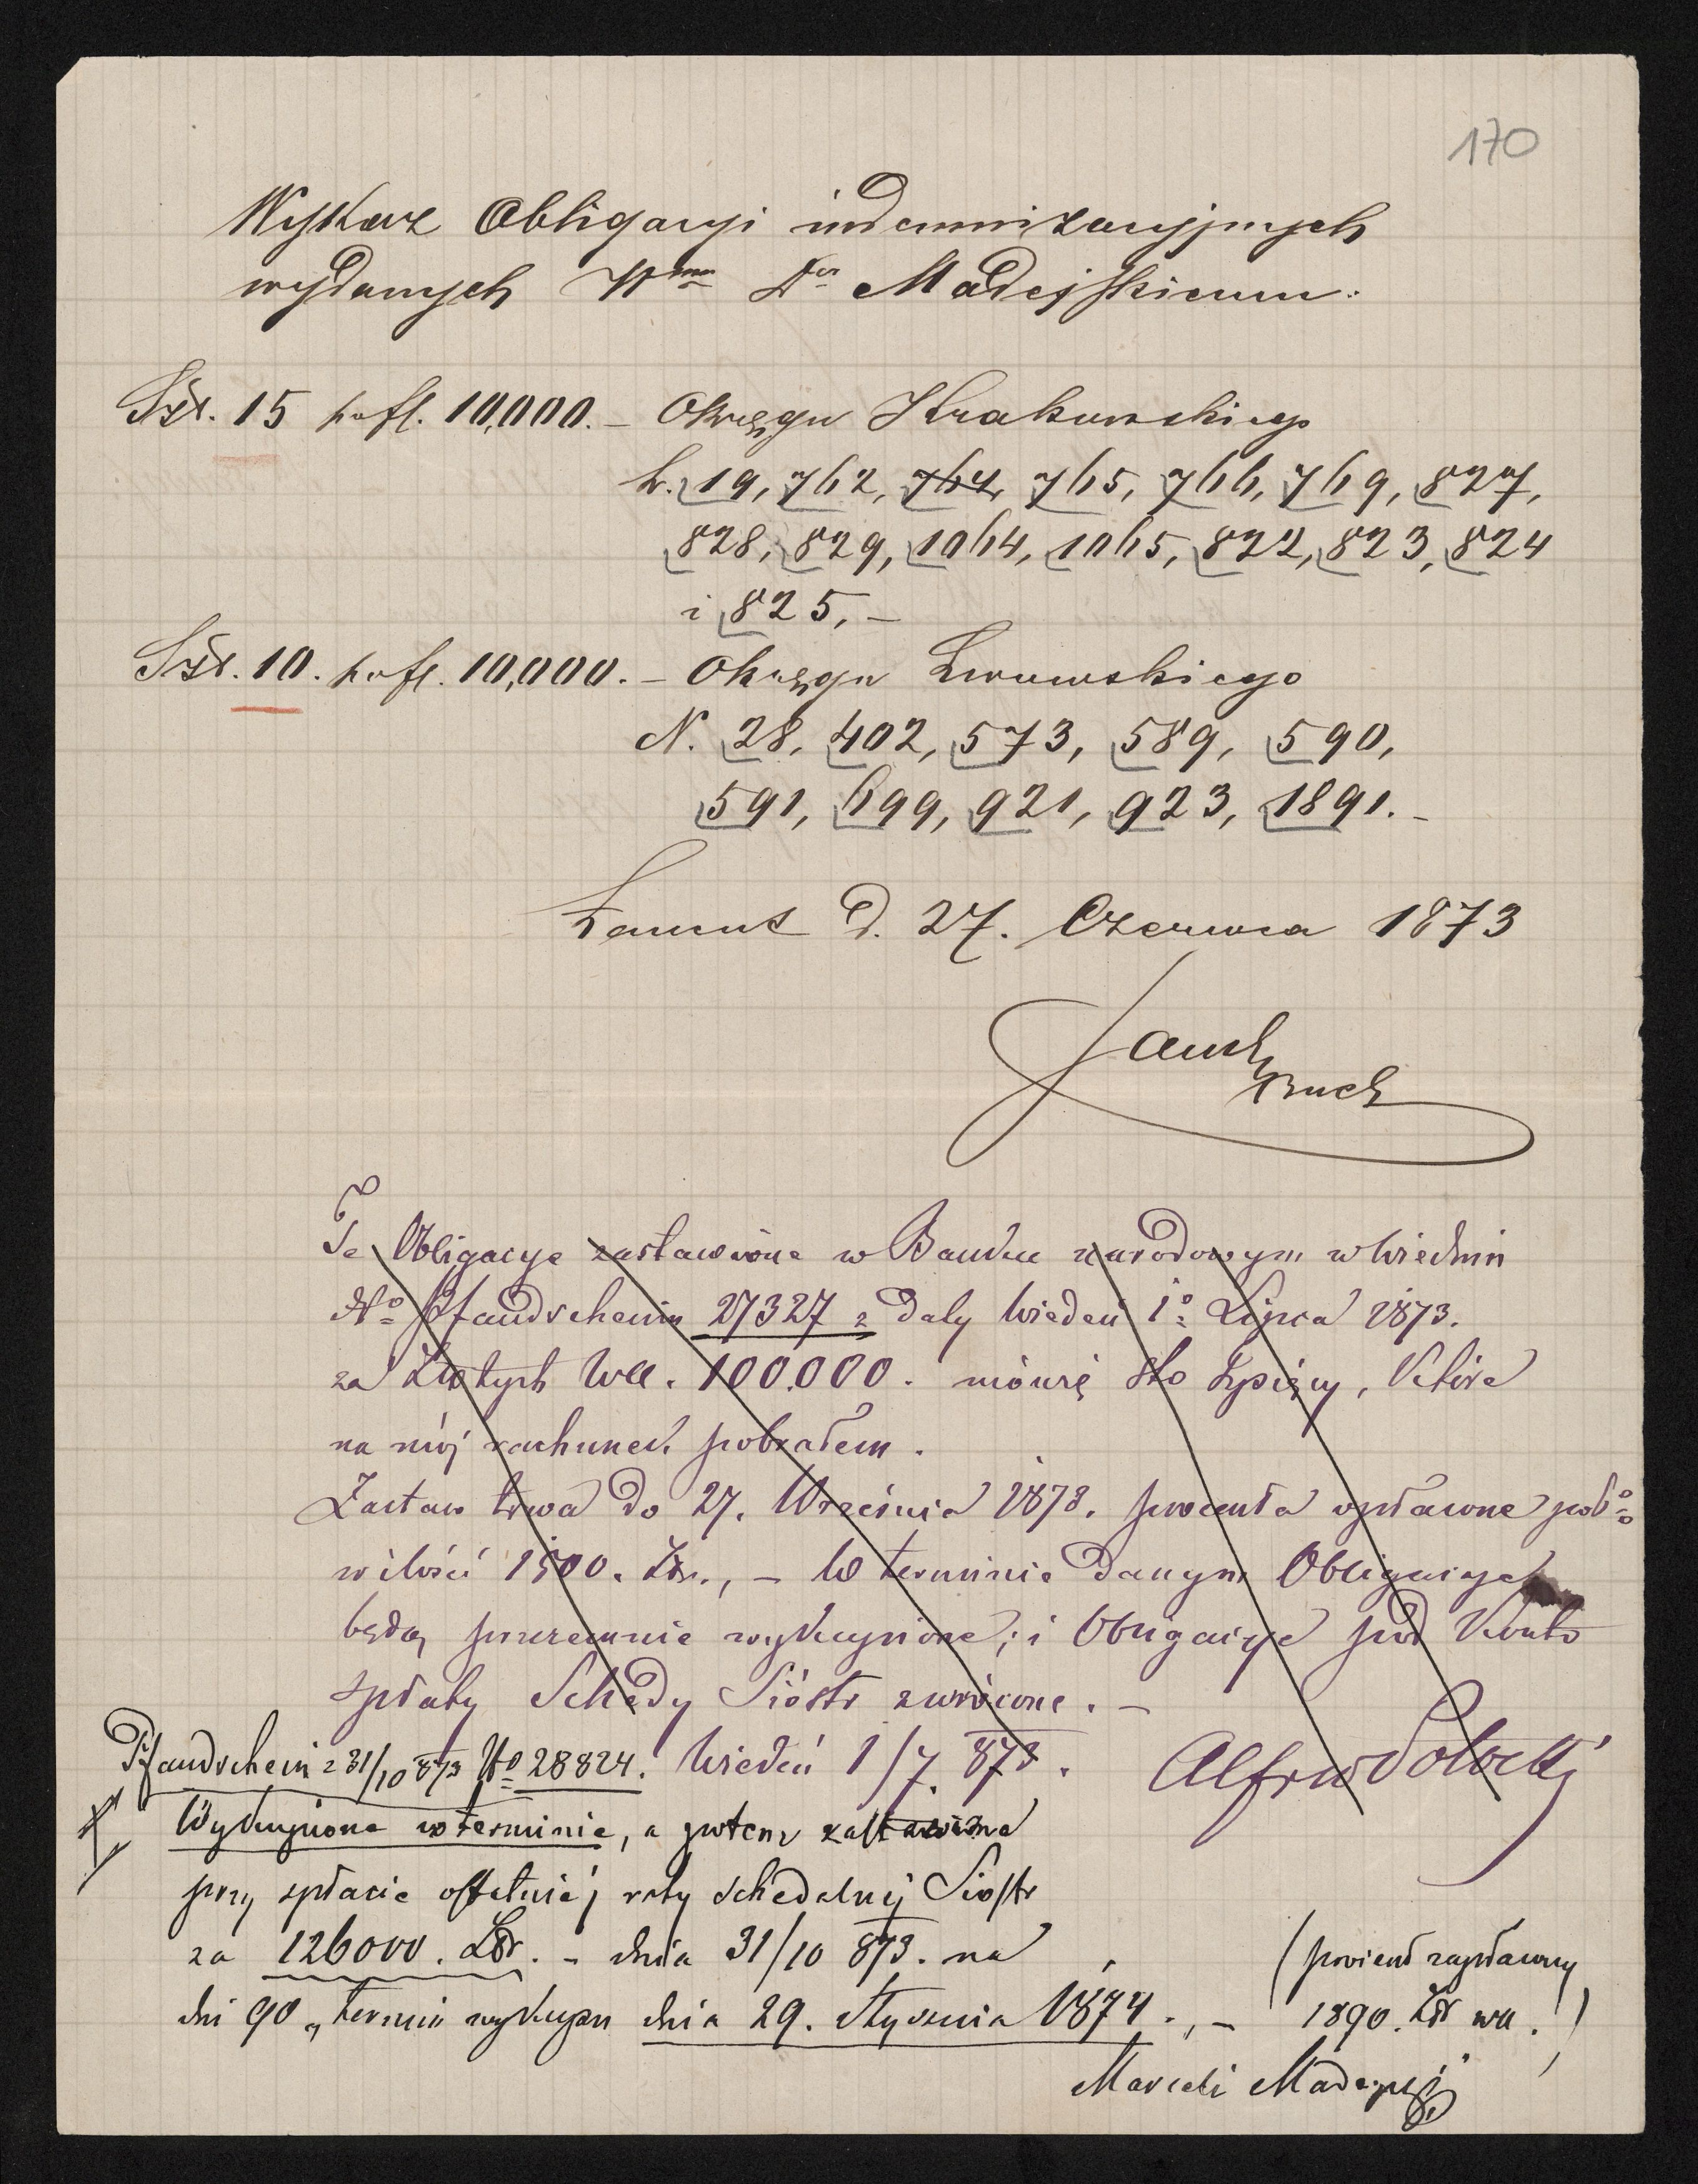 170
Wykaz Obligacyi indemnizacyjnych
wydanych Wmu Dr Madejskiemu:
Szt. 15 po fl. 10,000. — Okręgu Krakowskiego
L. 19, 762, 764, 765, 766, 769, 827,
828, 829, 1064, 1065, 822, 823, 824
i 825, —
Szt. 10. po fl. 10,000. — Okręgu Lwowskiego
N. 28, 402, 573, 589, 590,
591, 699, 921, 923, 1891. —
Łancut d. 27. Czerwca 1873
Te Obligacye zastawione w Banku narodowym w Wiedniu
No Pfandschein 27327 z daty Wiedeń 1o Lipca 1873.
za Złotych W.a. 100.000. mówię sto tysięcy, które
na mój rachunek pobrałem.
Zastaw trwa do 27. Września 1873. procenta opłacone
w ilości 1500. Złr., — W terminie danym Obligacye
będą przezemnie wykupione; i Obligacye pod Konto
spłaty Schedy Sióstr zwrócone. —
Wiedeń 1/7. 873.
Alfred Potocki
Pfandschein z 31/10 873 No 28824.
Wykupione w terminie, a potem zastawione
przy spłacie ostatniéj raty schedalnéj Siostr
za 126000. Złr. — dnia 31/10 873. na
dni 90, termin wykupu dnia 29. Stycznia 1874., —
(procent zapłacony
1890. Złr wa.)
Marceli Madejski